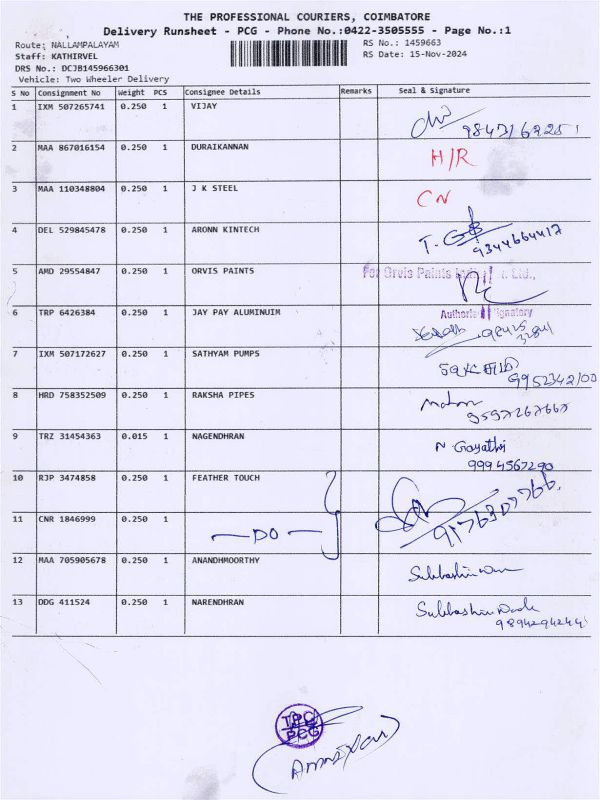 THE PROFESSIONAL COURIERS, COIMBATORE
Delivery Runsheet - PCG - Phone No.:0422-3505555 - Page No.:1
Route: NALLAMPALAYAM RS No.: 1459663
Staff: KATHIRVEL RS Date: 15-Nov-2024
DRS No.: DCJB145966301
Vehicle: Two Wheeler Delivery
S No Consignment No Weight PCS Consignee Details Remarks Seal & Signature
1 IXM 507265741 0.250 1 VIJAY
2 MAA 867016154 0.250 1 DURAIKANNAN H/R
3 MAA 110348804 0.250 1 J K STEEL CN
4 DEL 529845478 0.250 1 ARONN KINTECH
9344664417
5 AMD 29554847 0.250 1 ORVIS PAINTS For Orvis Paints Ltd.,
Signatory
6 TRP 6426384 0.250 1 JAY PAY ALUMINUIM
7 IXM 507172627 0.250 1 SATHYAM PUMPS
9952342100
8 HRD 758352509 0.250 1 RAKSHA PIPES
9597267667
9 TRZ 31454363 0.015 1 NAGENDHRAN N Gayathi
9994567290
10 RJP 3474858 0.250 1 FEATHER TOUCH
11 CNR 1846999 0.250 1 — DO —
12 MAA 705905678 0.250 1 ANANDHMOORTHY
13 DDG 411524 0.250 1 NARENDHRAN
9894294244
TPC
PCG